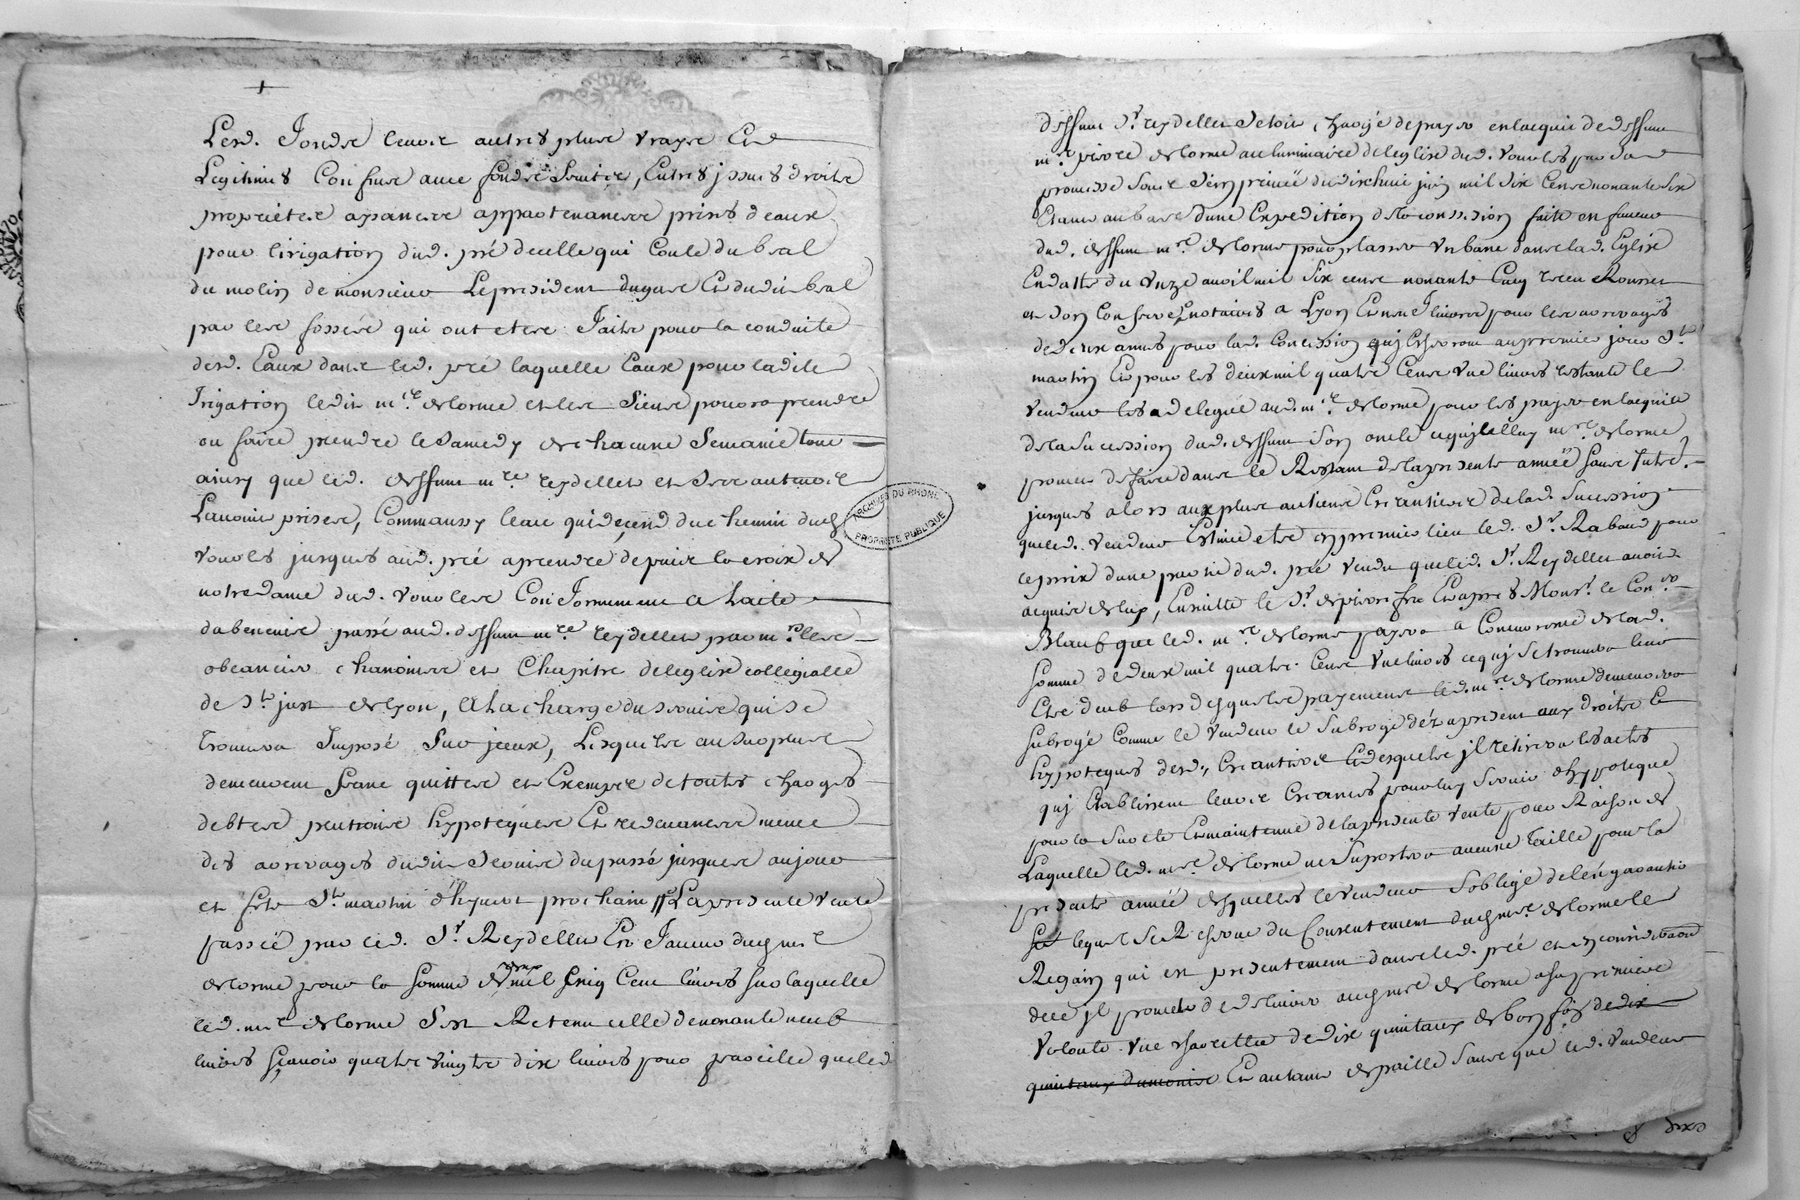 Lesd. fonds leurs autres plus vrays Et
Legitimes Confins avec fonds, Entrés jssues droits
proprietés apances appartenances prises deaux
pour lirigation dud. pré decelle qui Coule du beal
du molin de monsieur Lepresident dugas Et dudit beal
par les fossés qui ont etes faits pour la conduitte
desd. Eaux dans led. pré laquelle Eaux pour ladite
Irigation ledit mre delorme et les Siens pourra prendre
ou faire prendre le Samedy de chacune Semaine tout
ainsy que led. deffunt mre reydellet et Ses autheurs
Lavoint prises, Comm'aussy leau qui decend du chemin dud
vourles jusques aud. pré aprendre depuis la croix de
notre dame dud. vourles Conformement a Lacte
dabeneuis passé aud. deffunt mre reydellet par mrs les
obeancier chanoines et Chapitre deleglise collegialle
de St just de Lyon, A La charge du servis qui se
trouvera Imposé Sur jceux, Lesquels au Surplus
demeurent francs quittes et Exempts de toutes charges
debtes pentions hypoteques Et redevances mesme
des arrerages dudit Servis du passé jusques au jour
et feste St martin d'hyvert prochain Lapresente vente
passéé par led. Sr Reydellet En faveur dud mre
delorme pour la Somme de mil Cinq Cent livres Sur laquelle
led. mre delorme Sest Retenu celle de nonante neuf
livres Sçavoir quatre vingts dix livres pour pareille queled
deffunt Sr reydellet Setoit chargé depayer enlacquit dudeffunt
mre pierre delorme au luminaire deleglise dud. vourles par Sa
promesse Sous Sein privéé du dixhuit juin mil Six Cens nonante Six
Etant au bas dune Expedition dela concession faite en faveur
dud. deffunt mre delorme pour placer un banc dans lad. Eglise
En datte du unze avril mil Six cens nonante Cinq receu Rousset
et Son Confrere notaires a Lyon Et neuf livres pour les arrerages
de deux années pour lad. Concession quj Echeront au premier jour St
martin Et pour les deux mil quatre Cens une livres restante le
vendeur les a delegué aud. mre delorme pour les payer en lacquit
dela Succession dud. deffunt Son oncle cequj celluy mre delorme
promet defaire dans le Restant delapresente annéé Sans Interest
jusques alors aux plus antiens Creantiers de lad. Succession
queled. vendeur Estime etre en premier lieu led. Sr Rabaud pour
leprix dune partie dud. pré vendu queled. Sr Reydellet avoit
acquis deluy, Ensuitte le Sr Et apres Monsr le Conr
Blauf que led. mre delorme payera a Concurrence delad.
Somme de deux mil quatre Cens une livres cequj Setrouvera leur
Etre deub lors desquels payements led. mre delorme demeurera
Subrogé Comme le vendeur le Subroge déz apresent aux droits et
hypoteques desd. Creantiers Et desquels jl retirera les actes
quj Etablissent leurs Creances pour luy Servir d'hypoteque
pour la Sureté Et maintenue delapresente vente pour Raison de
Laquelle led. mre delorme ne Suportera aucune taille pour la
presente annéé desquelles le vendeur Soblige delén garantir
lequel Se Reserve du Consentement dud mre delorme le
Regain qui est presentement dans led. pré et en consideration
dece jl promet de delivrer aud mre delorme a sa premiere
volonté une charretée de dix quintaux de bon foin de dix
quintaux dumoins Et autant de paille Sans que led. vendeur
ARCHIVES DU RHONE
PROPRIETE PUBLIQUE